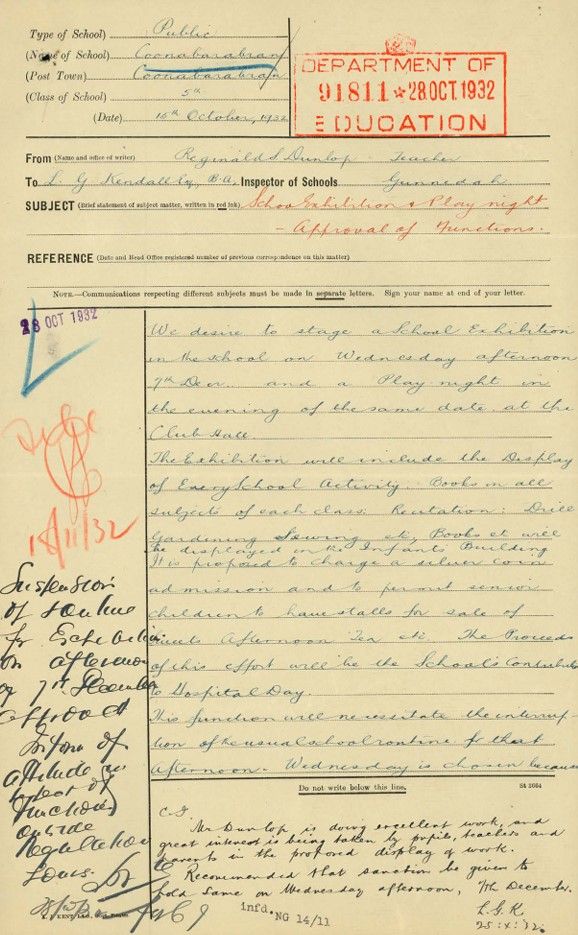 Type of School) Public
(Name of School) Coonabarabran
(Post Town) Coonabarabran
(Class of School) 5th
(Date) 15th October, 1932
DEPARTMENT OF
91811 * 28.OCT.1932
EDUCATION
From (Name and office of writer) Reginald S Dunlop Teacher
To L. G Kendall B.A. Inspector of Schools Gunnedah
SUBJECT (Brief statement of subject matter, written in red ink) School Exhibition & Play night
- Approval of Functions.
REFERENCE (Date and Head Office registered number of previous correspondence on this matter)
NOTE.—Communications respecting different subjects must be made in separate letters. Sign your name at end of your letter.
28 OCT 1932
We desire to stage a School Exhibition
in the school on Wednesday afternoon
7th Decr. and a Play night in
the evening of the same date at the
Club Hall.
The Exhibition will include the Display
of Every School Activity. Books in all
subjects of each class. Recitation: Drill
Gardening Sewing etc, Books et will
be displayed in the Infants Building
It is proposed to charge a silver coin
admission and to permit senior
children to have stalls for sale of
Afternoon Tea etc. The Proceeds
of this effort will be the School's Contribution
to Hospital Day.
This function will necessitate the interrup-
tion of the usual school routine for that
afternoon. Wednesday is chosen because
18/11/32
Suspension
of routine
for Exhibition
on afternoon
of 7th December
approved
Inform of
attitude in
respect of
functions
outside
Regulation
hours.
Do not write below this line.
St 3664
C.I.
Mr Dunlop is doing excellent work, and
great interest is being taken by pupils, teachers and
parents in the proposed display of work.
Recommended that sanction be given to
hold same on Wednesday afternoon, 7th December.
L.G.K
25:X:32.
infd. NG 14/11